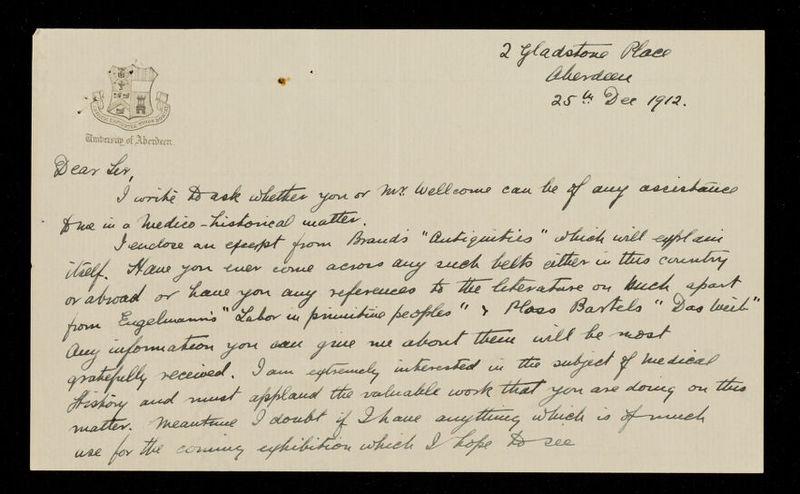 2 Gladstone Place
Aberdeen
25th Dec 1912.
University of Aberdeen
Dear Sir,
I write to ask whether you or Mr. Wellcome can be of any assistance
to me in a medico-historical matter.
I enclose an excerpt from Brand's "Antiquities" which will explain
itself. Have you ever come across any such belts either in this country
or abroad or have you any references to the literature on such apart
from Engelmann's "Labor in primitive peoples" & Ploss Bartels "Das Weib"
Any information you can give me about them will be most
gratefully received. I am extremely interested in the subject of medical
History and must applaud the valuable work that you are doing on this
matter. Meantime I doubt if I have anything which is of much
use for the coming exhibition which I hope to see